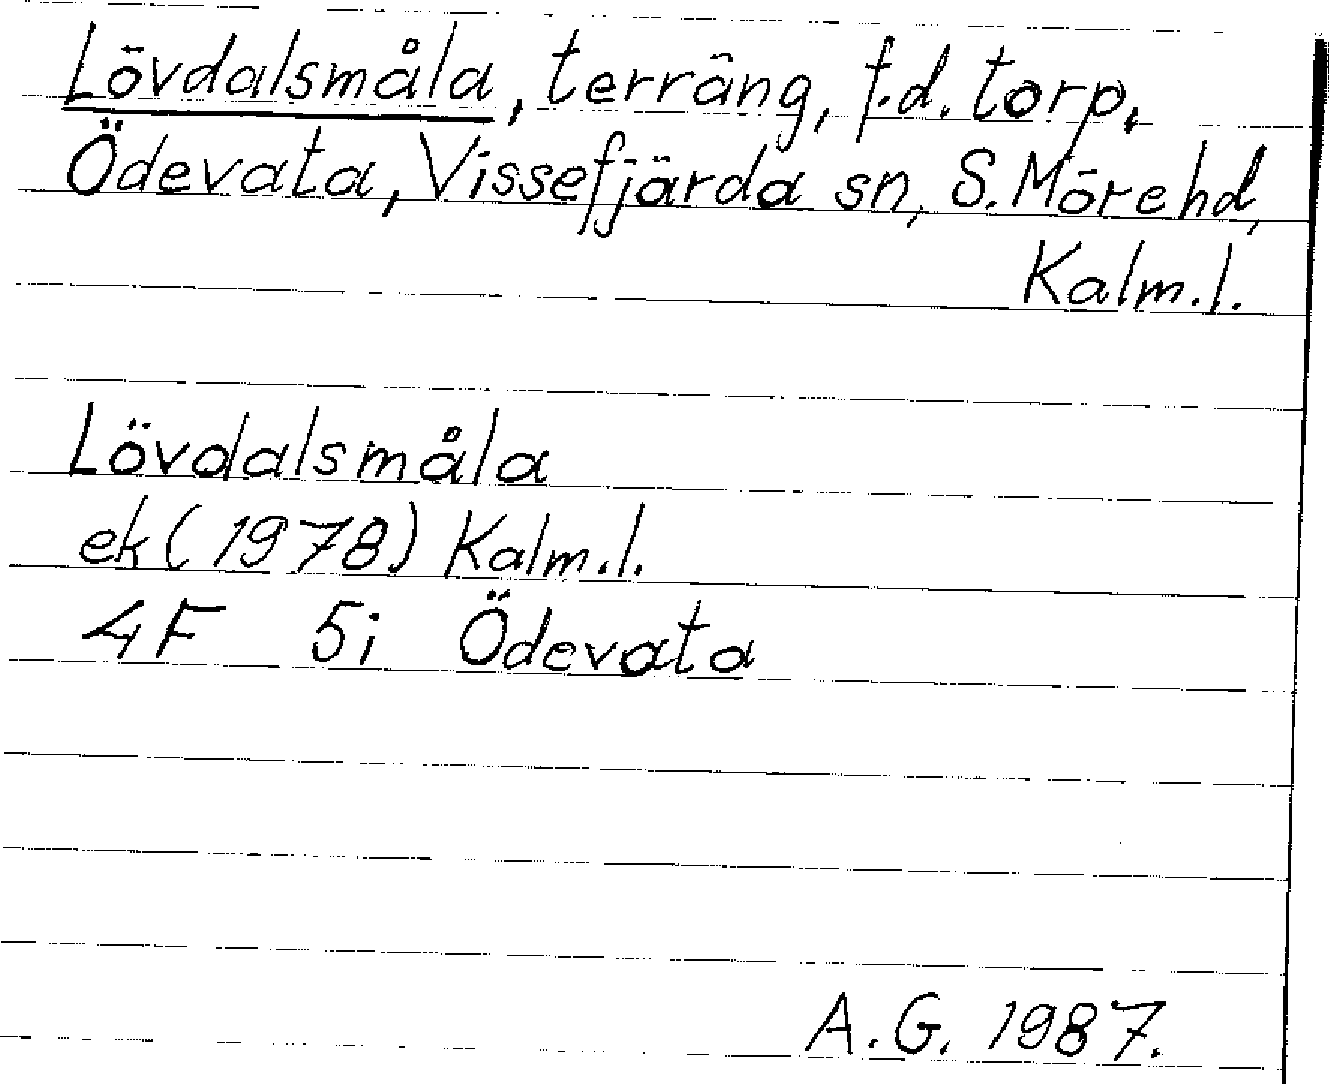 Lövdalsmåla, terräng, f.d. torp.
Ödevata, Vissefjärda sn, S. Möre hd,
Kalm.l.
Lövdalsmåla
ek (1978) Kalm.l.
4F 5i Ödevata
A.G. 1987.